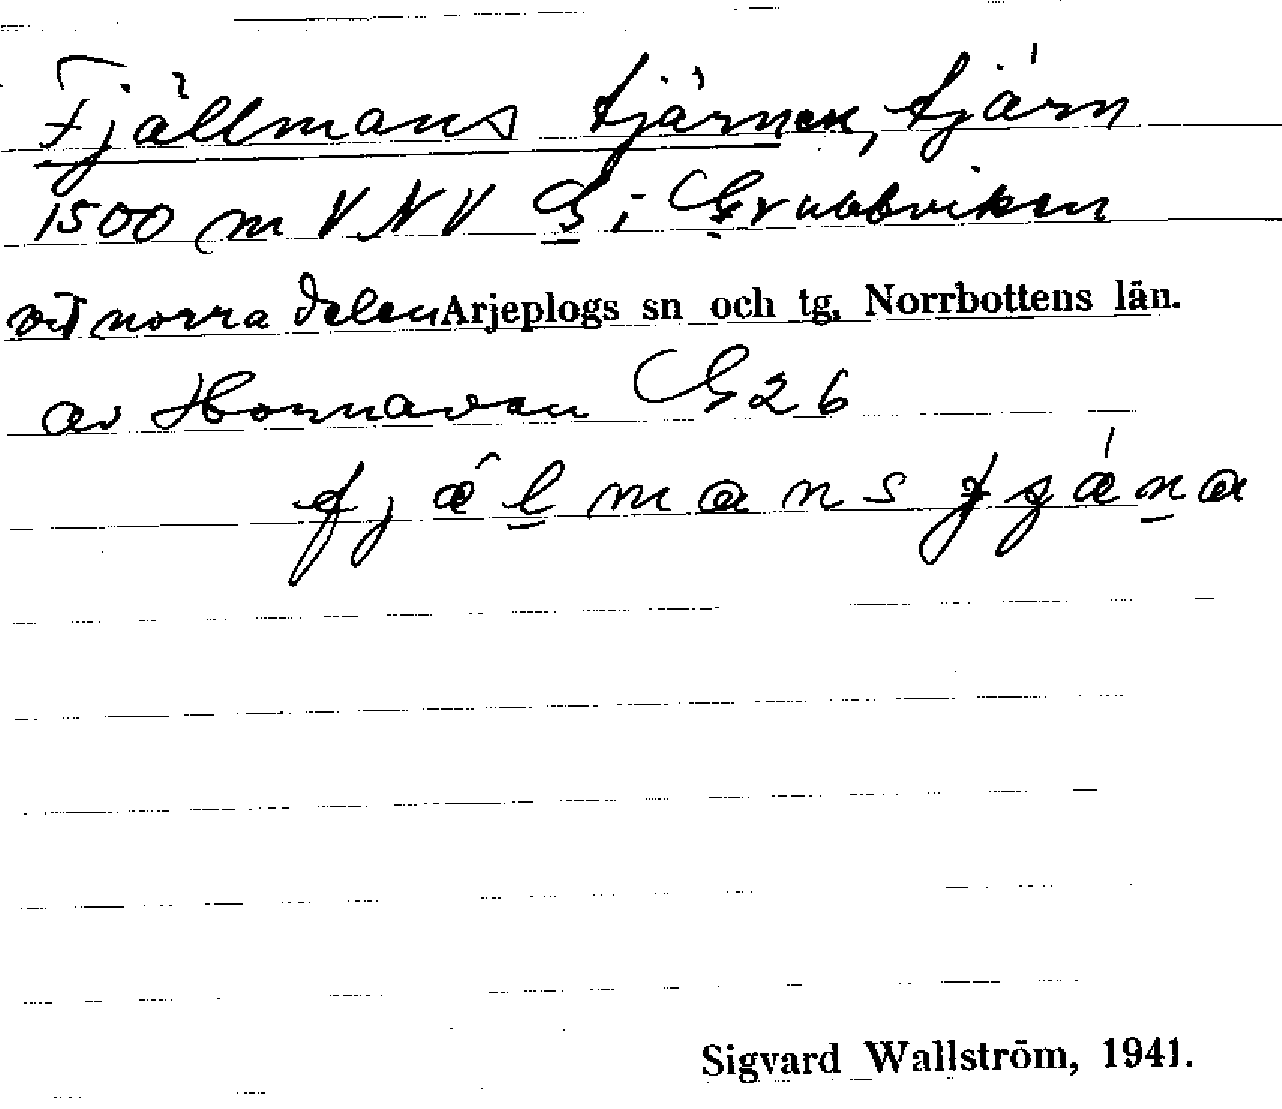 Fjällmans tjärnen, tjärn
1500 m VNV G i Grubbviken
vid norra delen Arjeplogs sn och tg, Norrbottens län.
av Hornavan G 26
fjælmans
Sigvard Wallström, 1941.